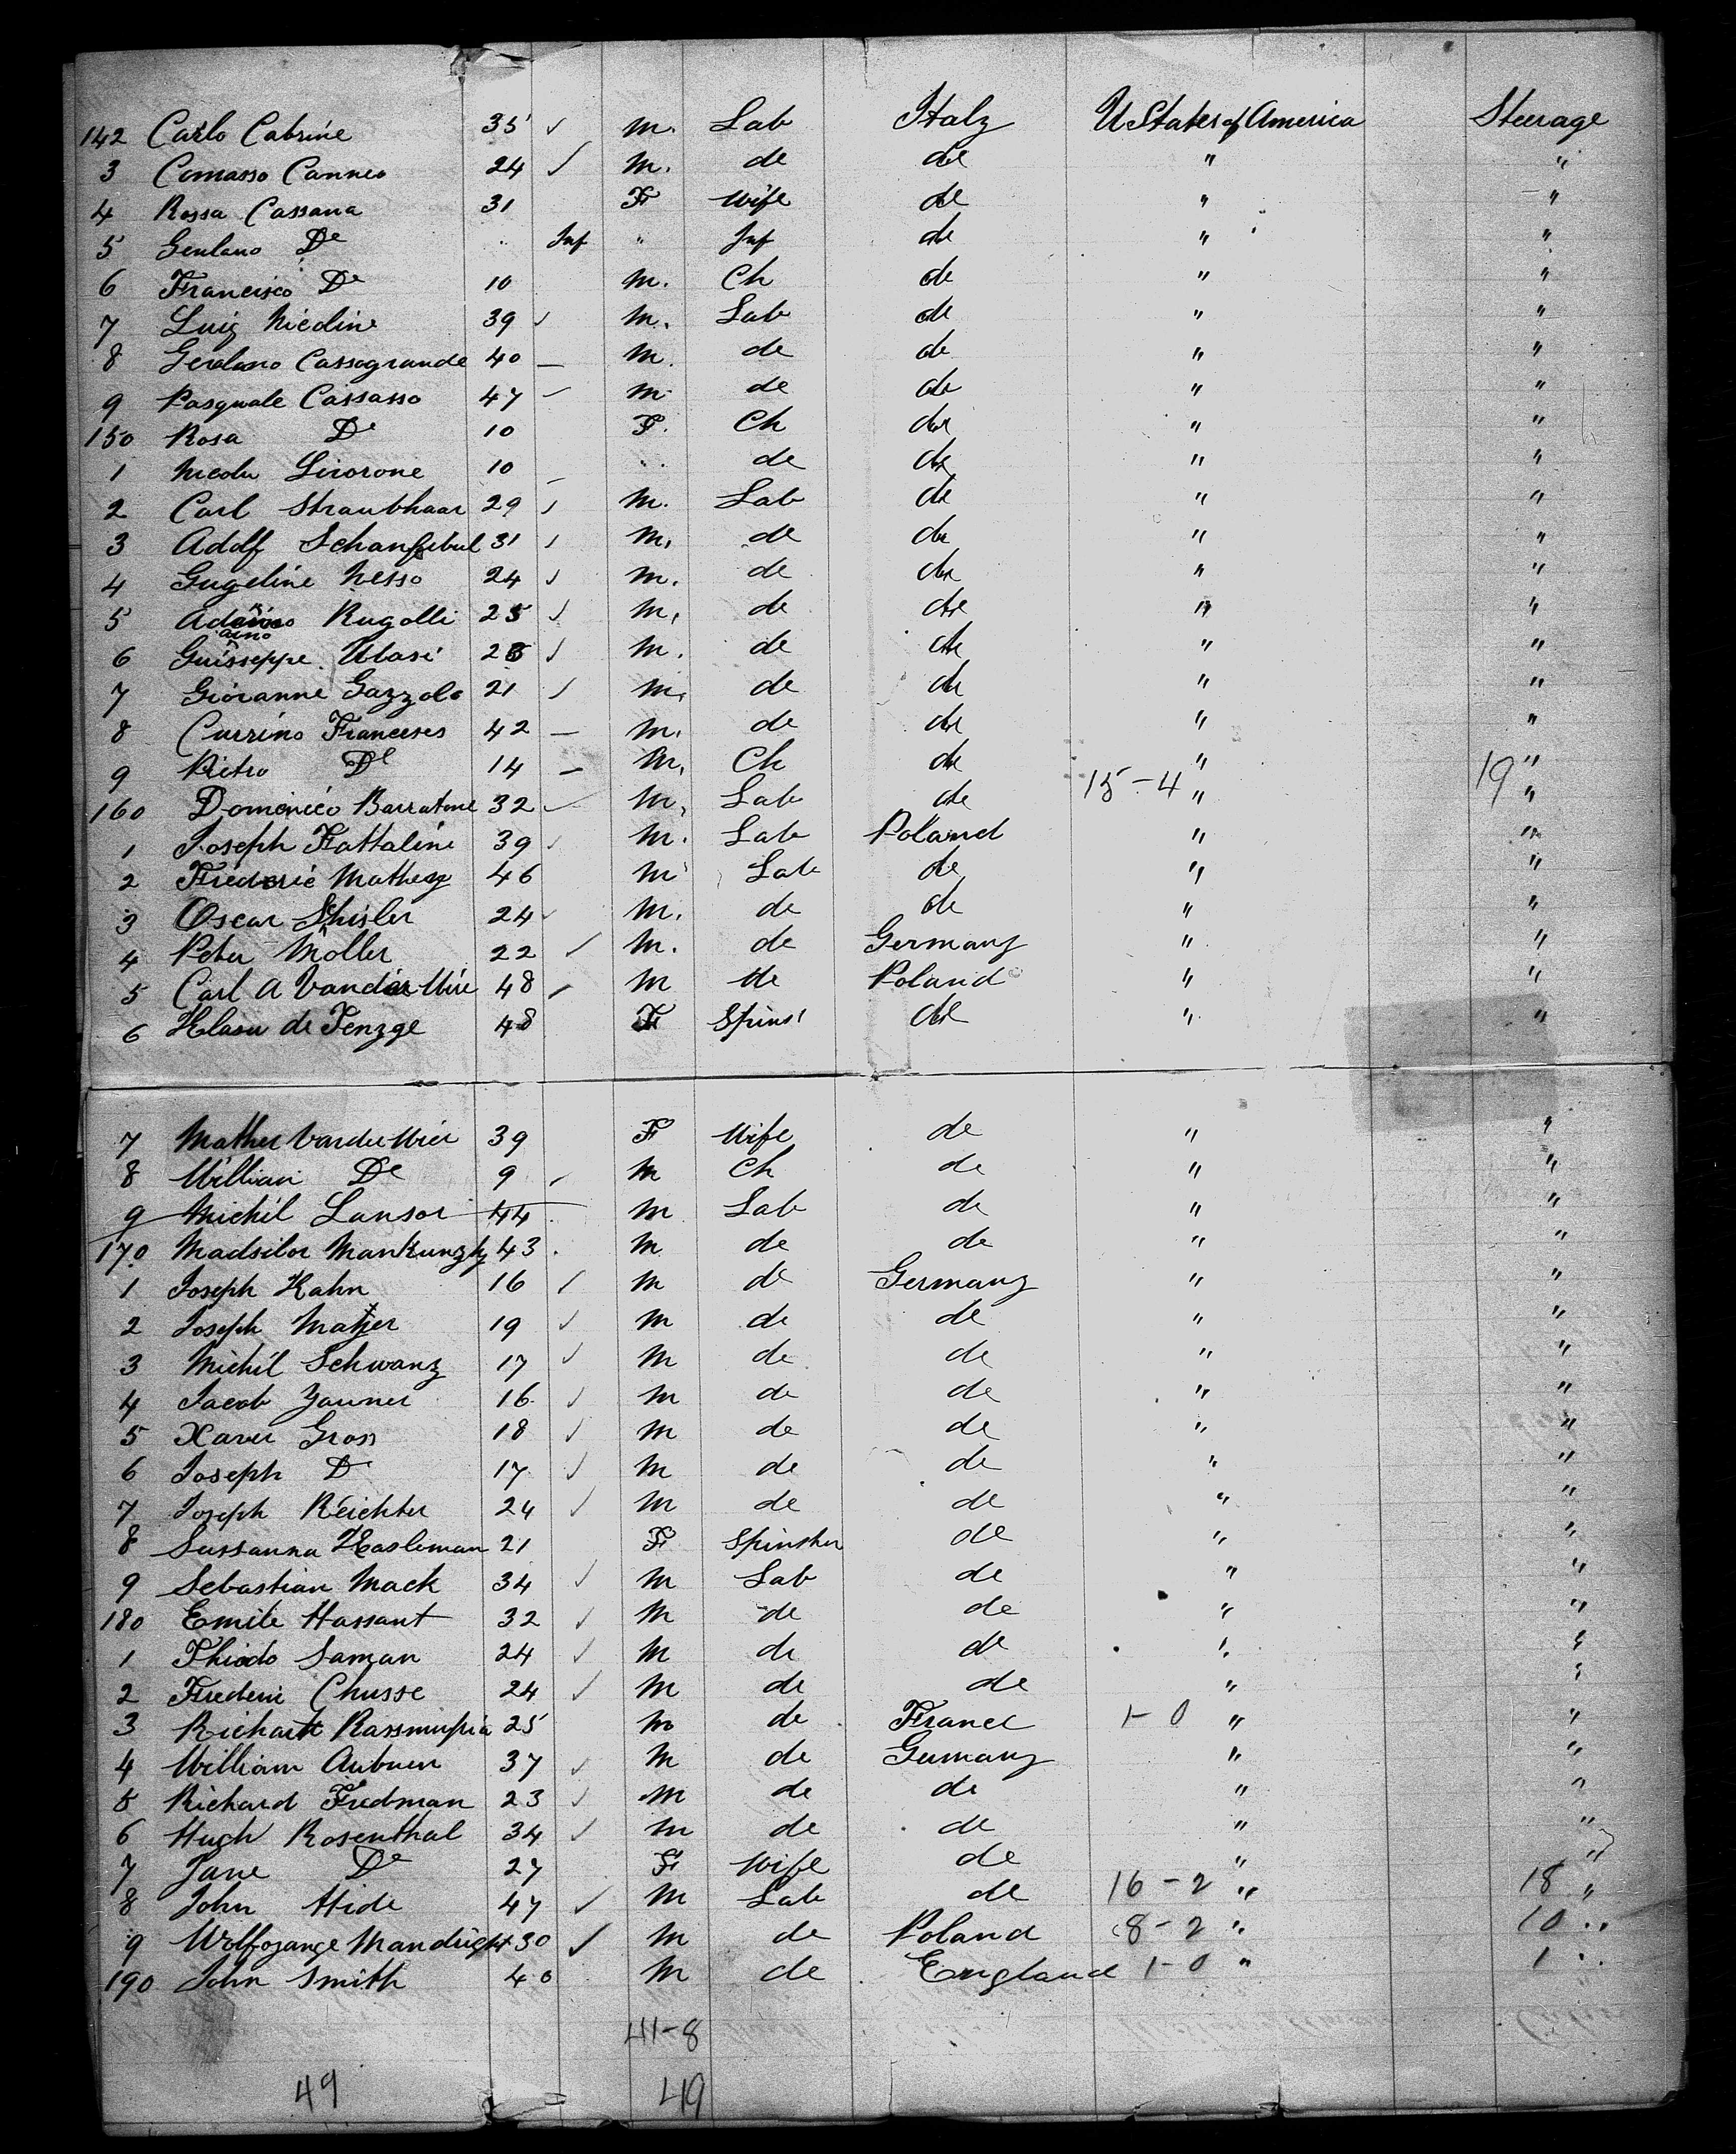 142 Carlo Cabrine 35 ✓ m. Lab Italy U States of America Steerage
3 Comasso Canneo 24 ✓ m. do do " "
4 Rossa Cassana 31 F Wife do " "
5 Genlano Do " Inf " Inf do " "
6 Francisco Do 10 m. Ch do " "
7 Luig Nicoline 39 ✓ m. Lab do " "
8 Gerolano Cassogrande 40 – m. do do " "
9 Pasquale Cassasso 47 – m do do " "
150 Rosa Do 10 F. Ch do " "
1 Nicola Lirorone 10 – " do do " "
2 Carl Straubhaar 29 ✓ m. Lab do " "
3 Adolf 31 ✓ m. do do " "
4 Gugeline Nesso 24 ✓ m. do do " "
5 Rugolli 25 ✓ m. do do " "
6 Guisseppe Ulasi 23 ✓ m. do do " "
7 Giovanne Gazzolo 21 ✓ m. do do " "
8 Currino Franceses 42 – m. do do " "
9 Pietro Do 14 – m. Ch do " 19 "
160 Domenico Barratone 32 ✓ m. Lab do 15-4 " "
1 Joseph Fattaline 39 ✓ m. Lab Poland " "
2 Frederic Mathey 46 m Lab do " "
3 Oscar Shisler 24 ✓ m. do do " "
4 Peter Moller 22 ✓ m. do Germany " "
5 Carl A Vander Mire 48 ✓ m do Poland " "
6 Klasu de Fenzge 48 F Spinst do " "
7 Mather Vander Mier 39 F Wife do " "
8 William Do 9 ✓ m Ch do " "
9 Michil Lansor 44 m Lab do " "
170 Madsilor Mankunzky 43 m do do " "
1 Joseph Kahn 16 ✓ m do Germany " "
2 Joseph 19 ✓ m do do " "
3 Michil Schwanz 17 ✓ m do do " "
4 Jacob Zauner 16 ✓ m do do " "
5 Xaver Gross 18 ✓ m do do " "
6 Joseph Do 17 ✓ m do do " "
7 Joseph Reichter 24 ✓ m do do " "
8 Sussanna Hasleman 21 F Spinster do " "
9 Sebastian Mack 34 ✓ m Lab do " "
180 Emile Hassant 32 ✓ m do do " "
1 Thiodo Saman 24 ✓ m do do " "
2 Frederic Chusse 24 ✓ m do do " "
3 Richard 25 m do France 1-0 " "
4 William Aubuen 37 ✓ m do Germany " "
5 Richard Fredman 23 ✓ m do do " "
6 Hugh Rosenthal 34 ✓ m do do " "
7 Jane Do 27 F Wife do " "
8 John Hide 47 ✓ m Lab do 16-2 " 18 "
9 Wolfogange Mandright 30 ✓ m do Poland 8-2 " 10 "
190 John Smith 40 m do England 1-0 " 1 "
41-8
49 49